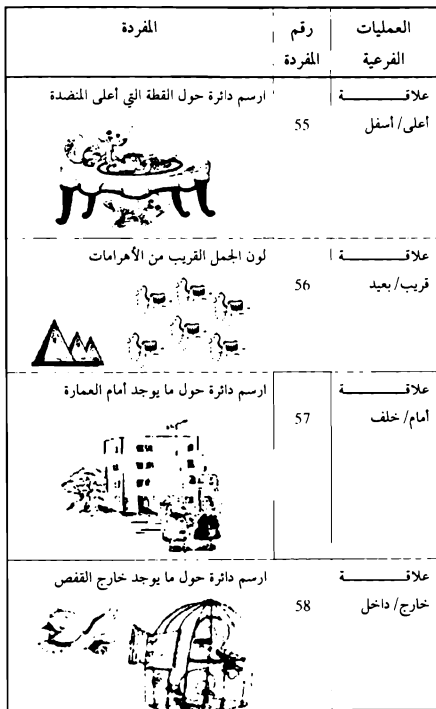 العمليات الفرعية
رقم المفردة
المفردة
علاقـــــــــة أعلى/ أسفل
55
ارسم دائرة حول القطة التي أعلى المنضدة
علاقـــــــــة قريب/ بعيد
56
لون الجمل القريب من الأهرامات
علاقـــــــــة أمام/ خلف
57
ارسم دائرة حول ما يوجد أمام العمارة
علاقـــــــــة خارج/ داخل
58
ارسم دائرة حول ما يوجد خارج القفص